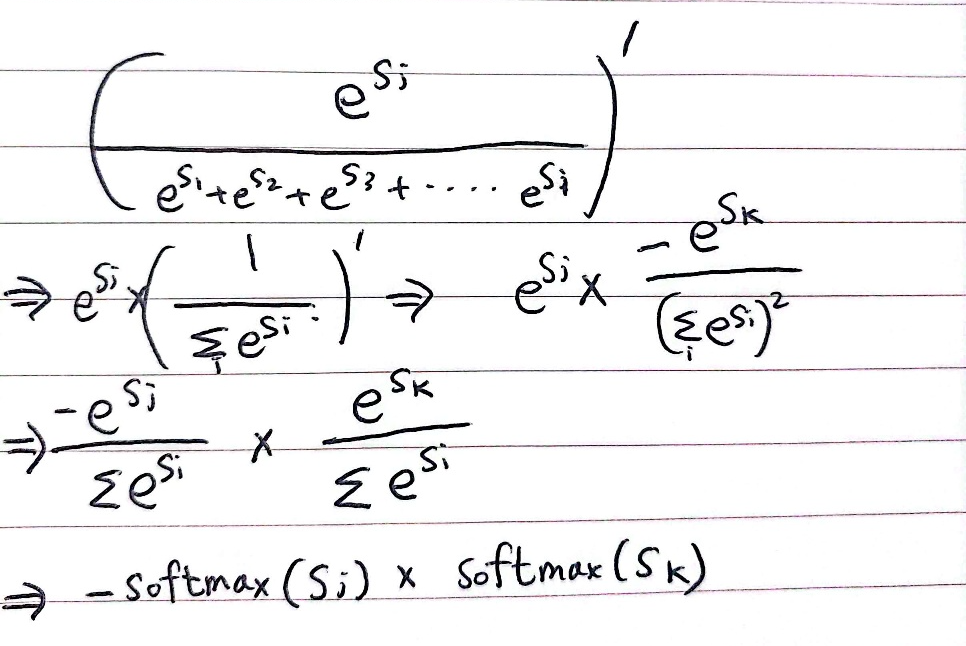 ( e^{Sj} / e^{S1} + e^{S2} + e^{S3} + ····· e^{Si} )′
⇒ e^{Sj} × ( 1 / Σ_i e^{Si} )′ ⇒ e^{Sj} × -e^{SK} / (Σ_i e^{Si})^2
⇒ -e^{Sj} / Σ e^{Si} × e^{SK} / Σ e^{Si}
⇒ - softmax (Sj) × softmax (SK)